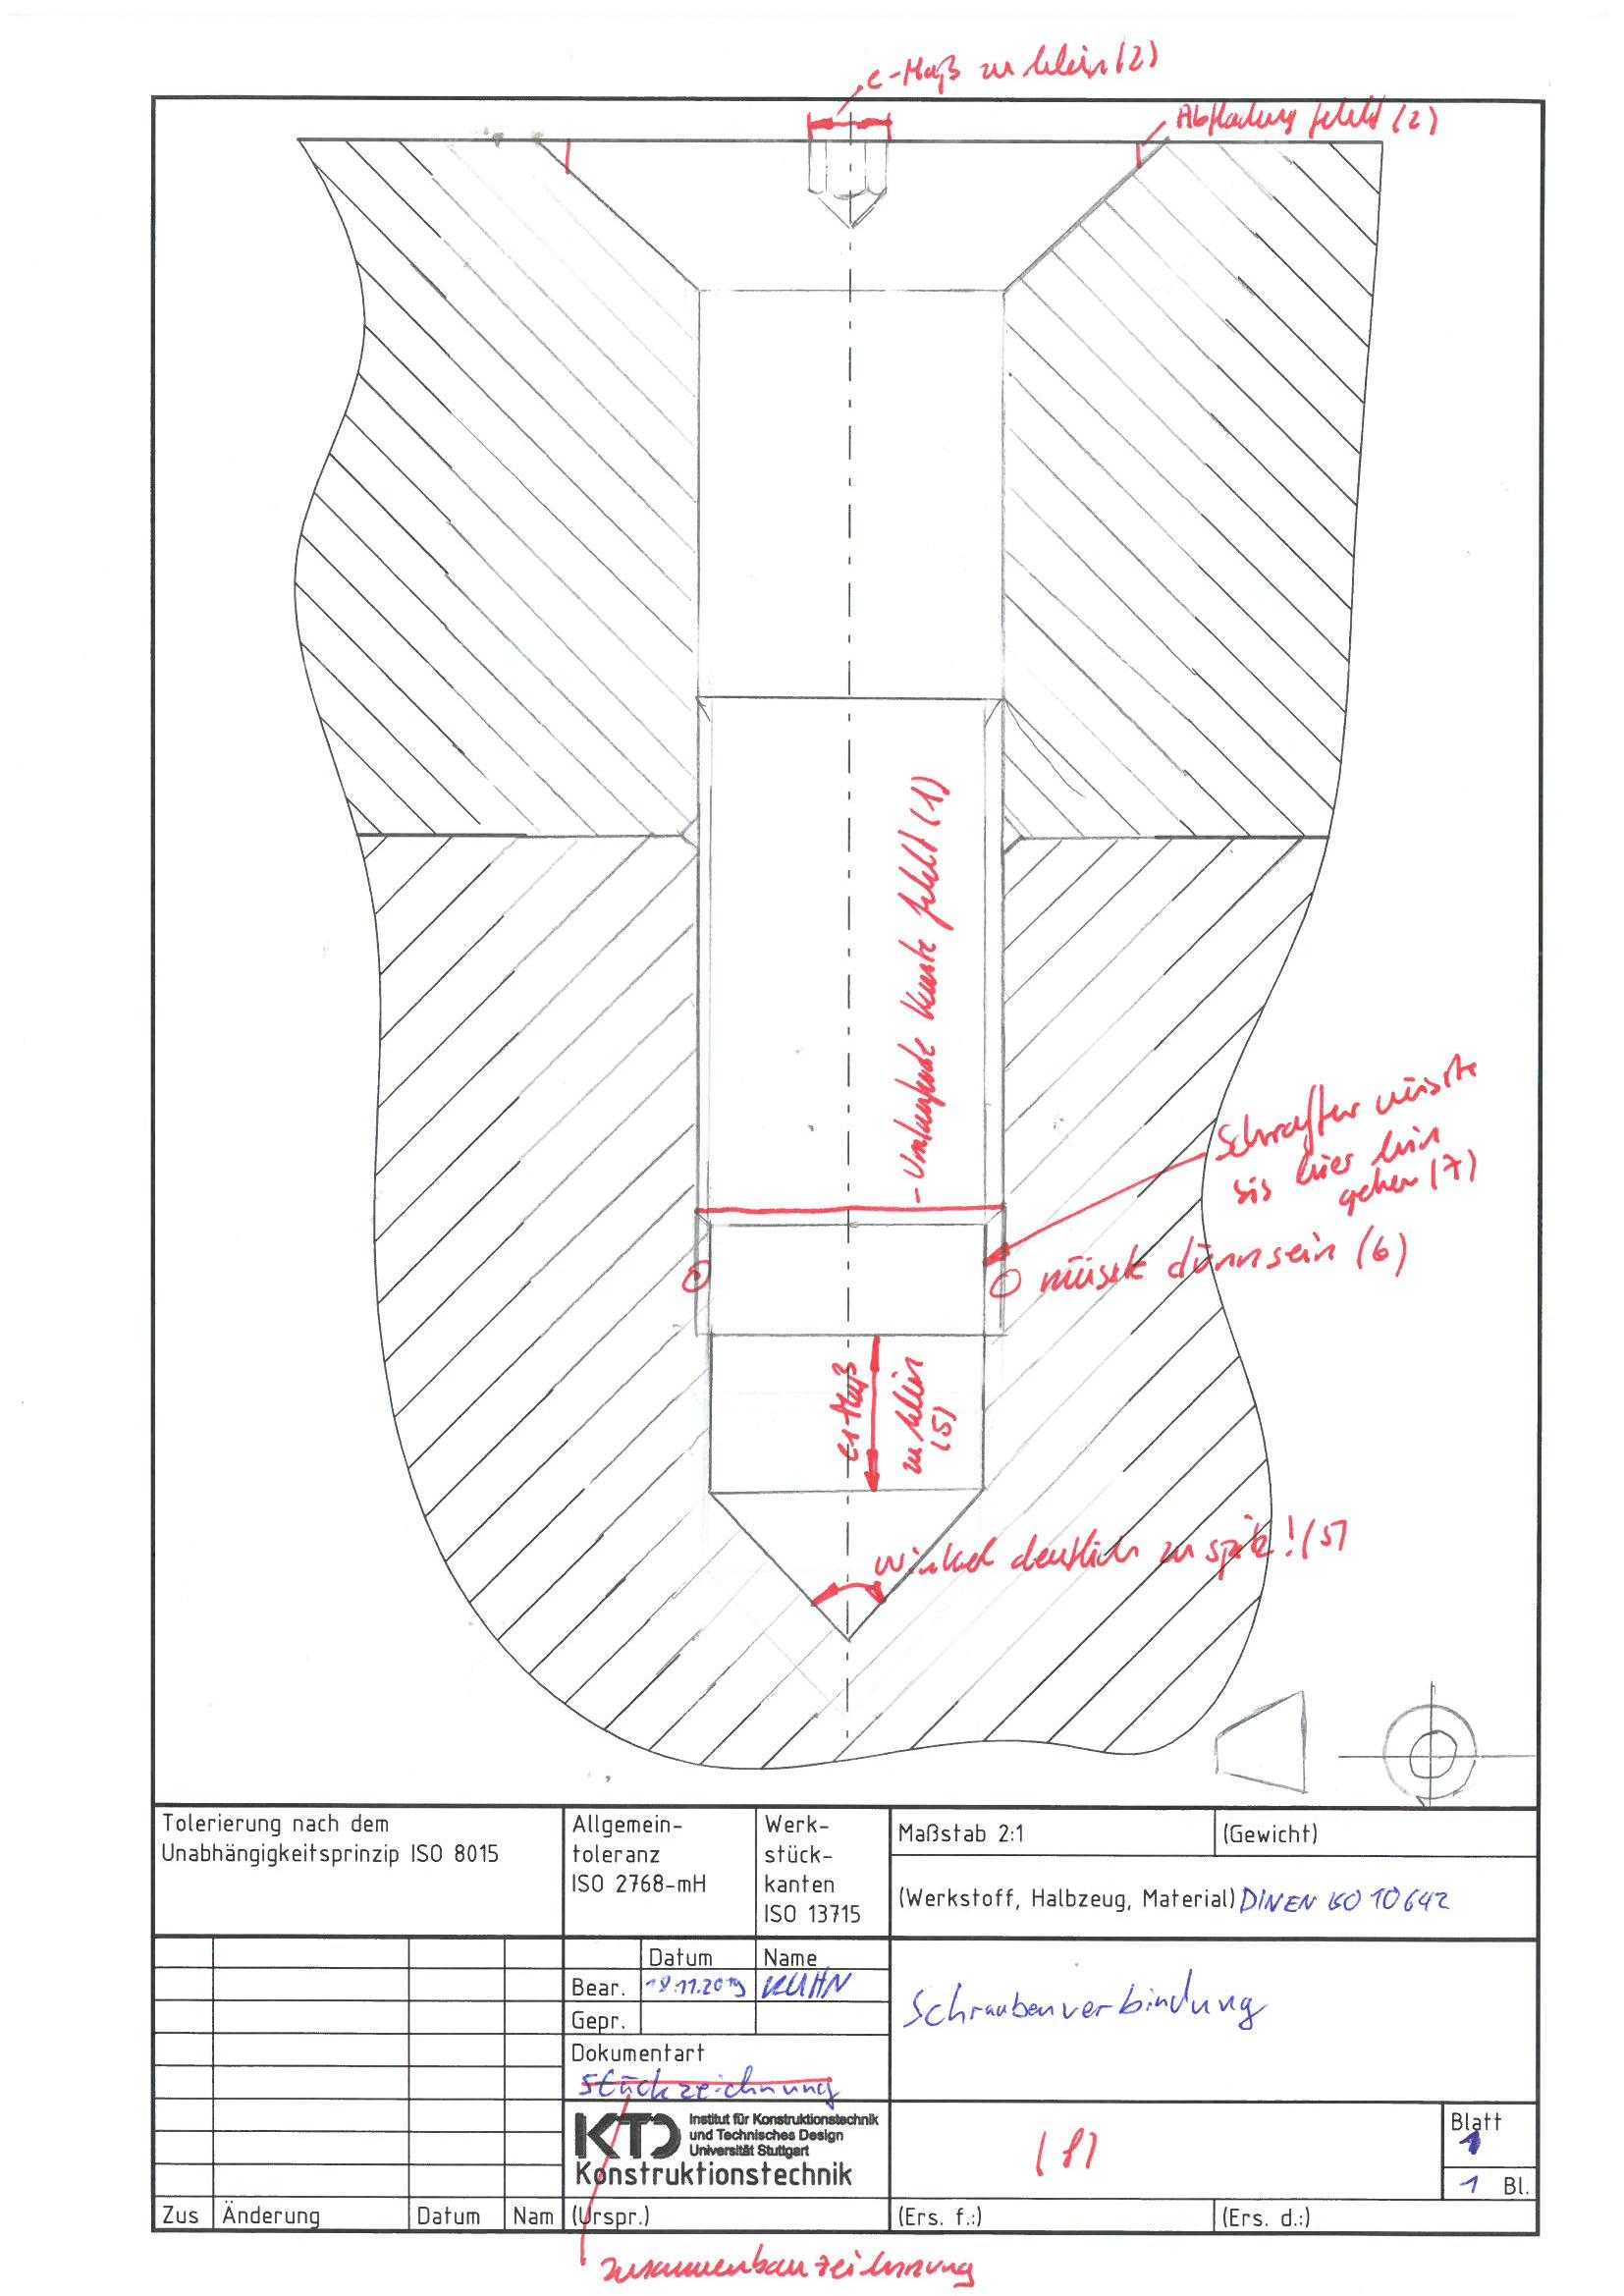 e-Maß zu klein (2)
Abflachung fehlt (2)
- Umlaufende Kante fehlt (1)
Schraffur müsste
bis hier hin
gehen (7)
müsste dünn sein (6)
e1 Maß
zu klein
(5)
Winkel deutlich zu spitz! (5)
Tolerierung nach dem
Unabhängigkeitsprinzip ISO 8015
Allgemein-
toleranz
ISO 2768-mH
Werk-
stück-
kanten
ISO 13715
Maßstab 2:1
(Gewicht)
(Werkstoff, Halbzeug, Material) DIN EN ISO 10642
Datum Name
Bear. 18.11.2019 KUHN
Gepr.
Schraubenverbindung
Dokumentart
Stückzeichnung
KTD Institut für Konstruktionstechnik
und Technisches Design
Universität Stuttgart
Konstruktionstechnik
(8)
Blatt
1
1 Bl.
Zus Änderung Datum Nam (Urspr.) (Ers. f.:) (Ers. d.:)
Zusammenbauzeichnung